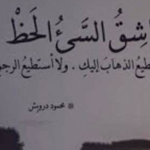 اشِقُ السَّيِّءُ الحَظْ
طيعُ الذهابَ إليكِ . ولا أستطيعُ الرجو
* محمود درويش